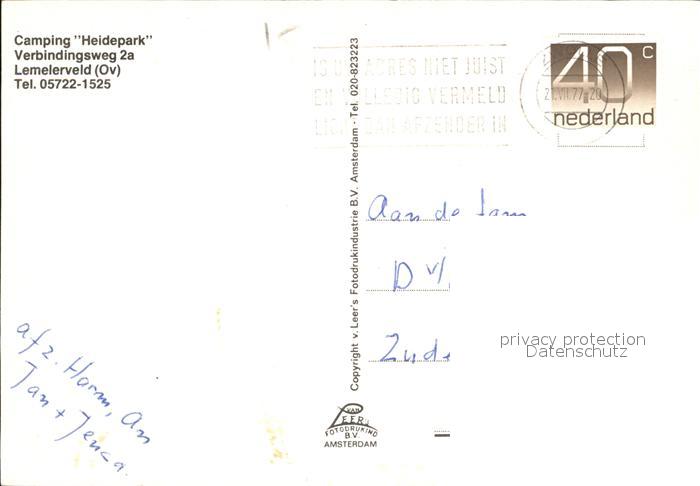 Camping "Heidepark"
Verbindingsweg 2a
Lemelerveld (Ov)
Tel. 05722-1525
ADRES NIET JUIST
VERMELD
AFZENDER IN
21.VII.77-20
40 c
nederland
Copyright v. Leer's Fotodrukindustrie B.V. Amsterdam - Tel. 020-823223
Aan de fam
D v/
Zude
privacy protection
Datenschutz
afz. Harm, An
Jan + Jenca.
VAN
LEER's
FOTODRUKIND
B.V.
AMSTERDAM